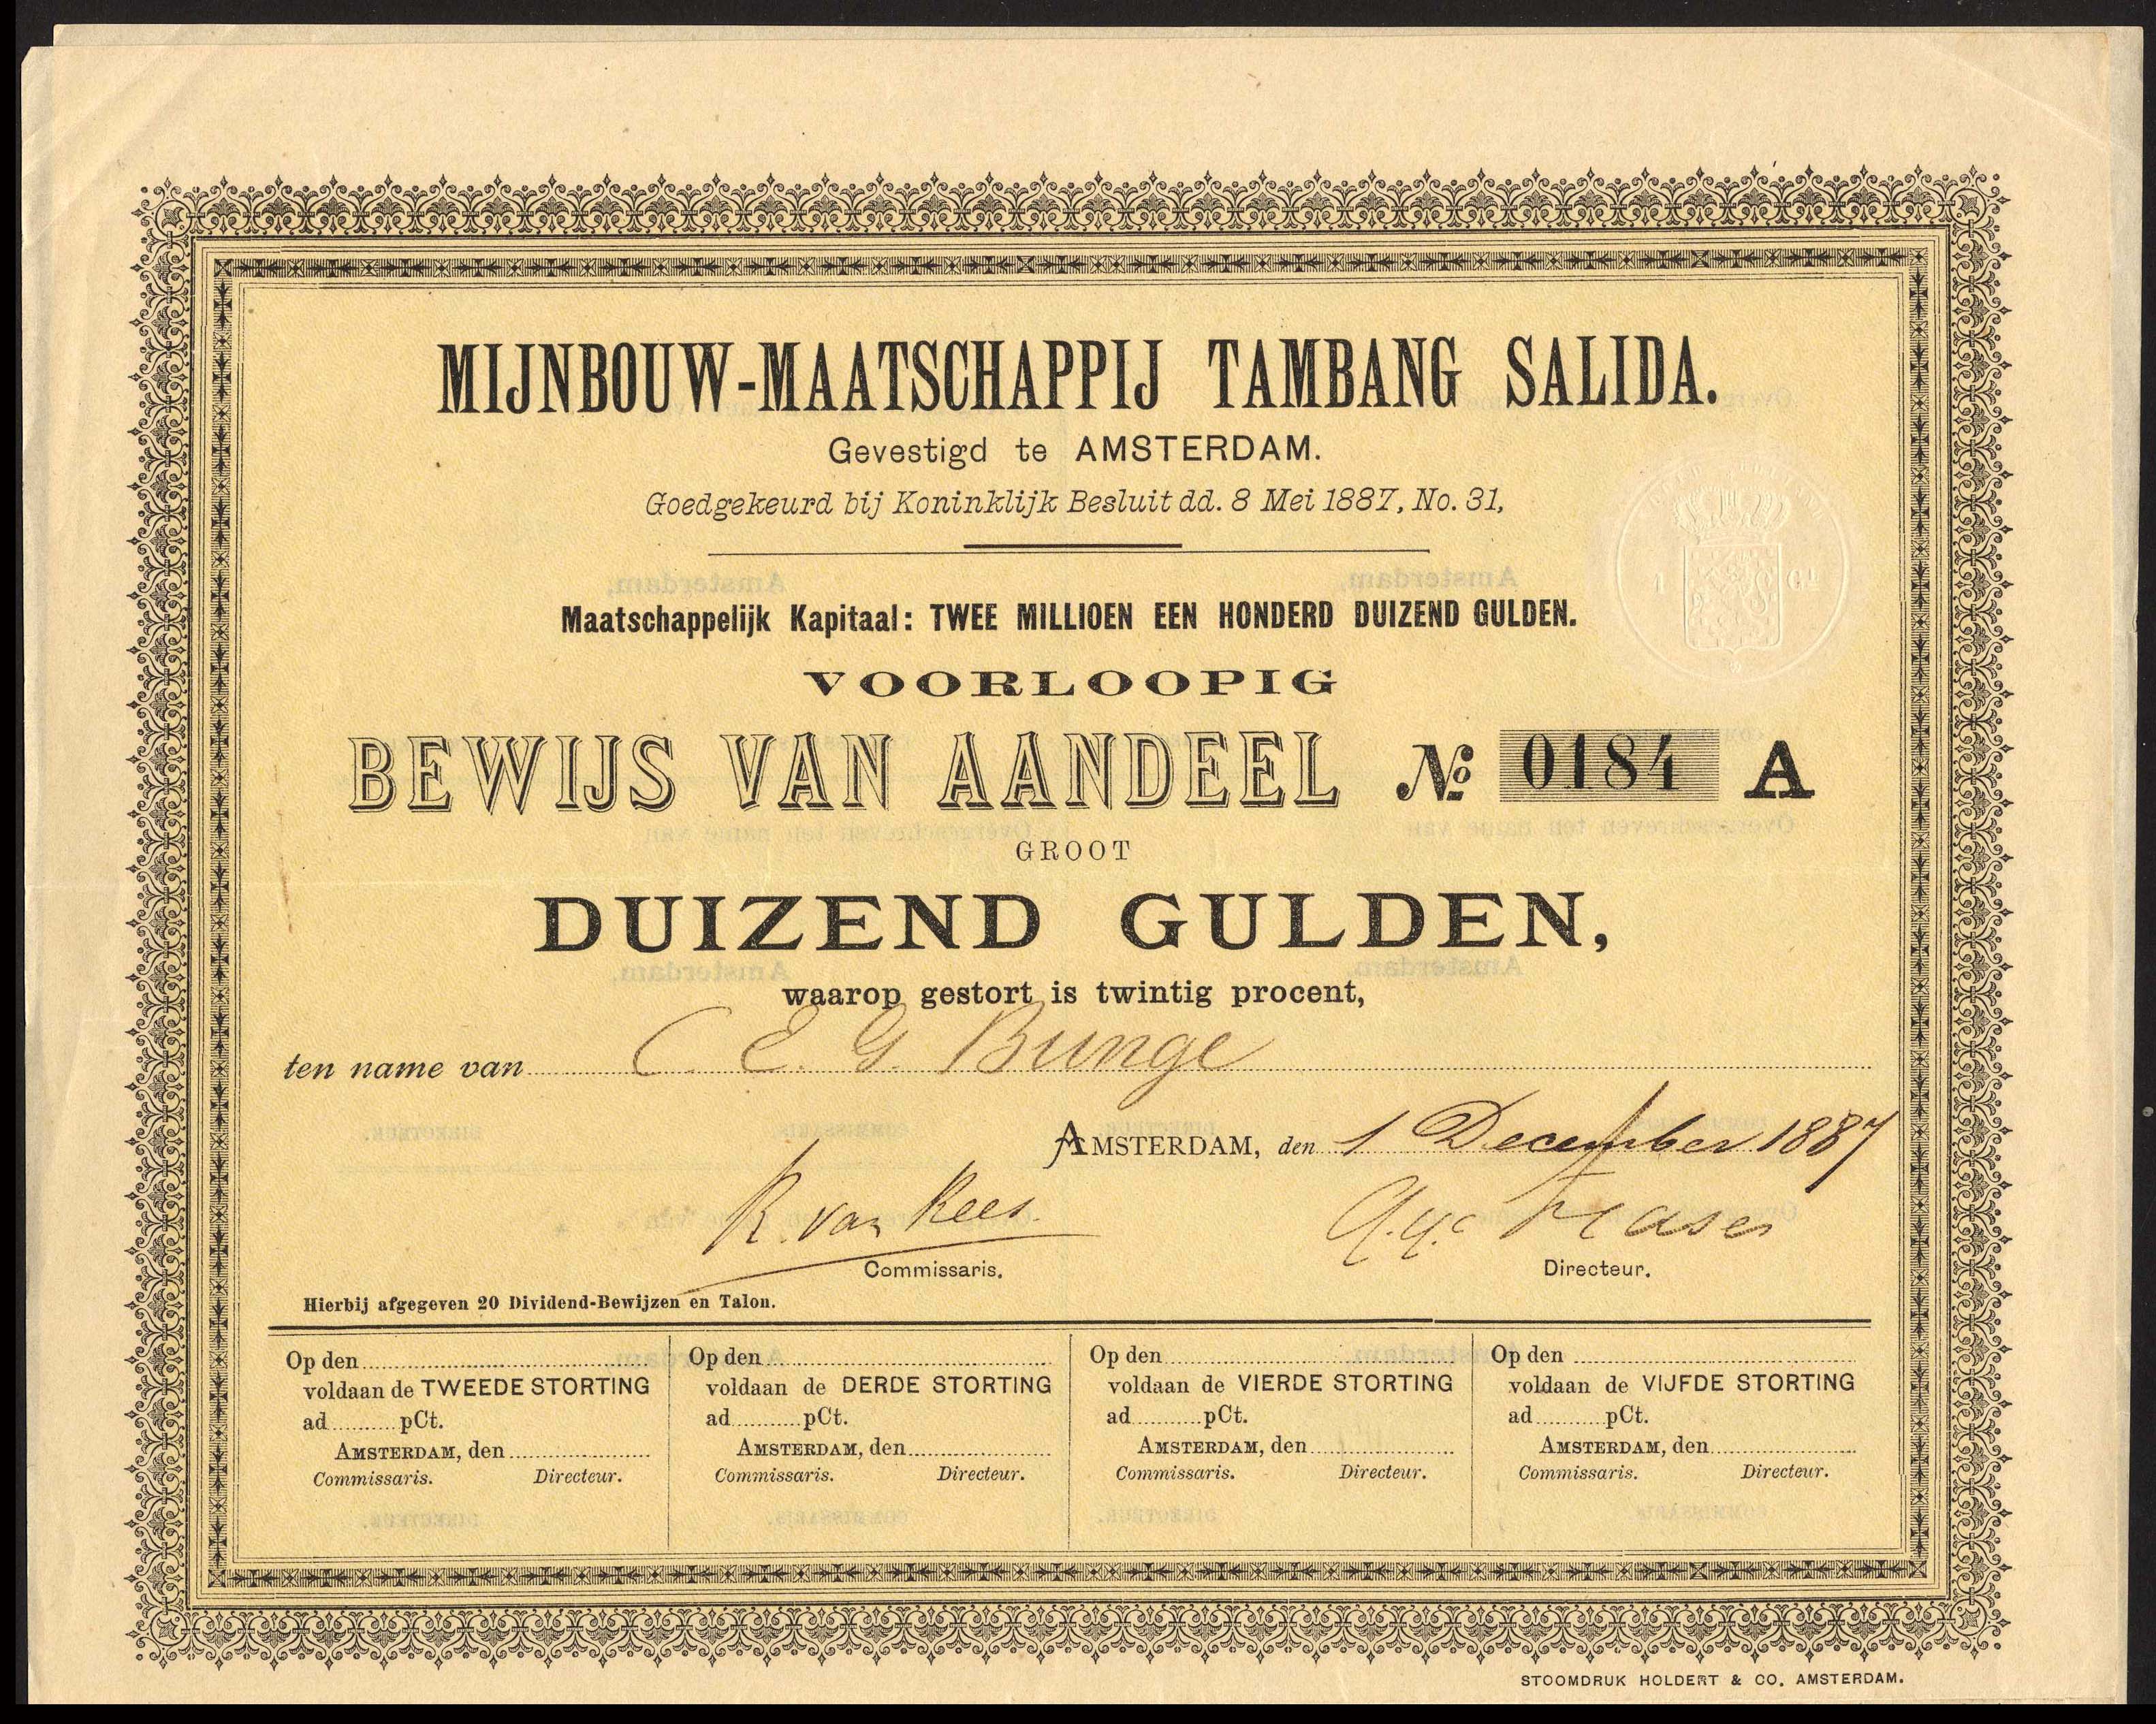 MIJNBOUW-MAATSCHAPPIJ TAMBANG SALIDA.
Gevestigd te AMSTERDAM.
Goedgekeurd bij Koninklijk Besluit dd. 8 Mei 1887, No. 31,
Maatschappelijk Kapitaal: TWEE MILLIOEN EEN HONDERD DUIZEND GULDEN.
VOORLOOPIG
BEWIJS VAN AANDEEL No 0184 A
GROOT
DUIZEND GULDEN,
waarop gestort is twintig procent,
ten name van C. E. G. Bunge
AMSTERDAM, den 1 December 1887
R. van Rees. Fraser
Commissaris. Directeur.
Hierbij afgegeven 20 Dividend-Bewijzen en Talon.
Op den
voldaan de TWEEDE STORTING
ad pCt.
AMSTERDAM, den
Commissaris. Directeur.
Op den
voldaan de DERDE STORTING
ad pCt.
AMSTERDAM, den
Commissaris. Directeur.
Op den
voldaan de VIERDE STORTING
ad pCt.
AMSTERDAM, den
Commissaris. Directeur.
Op den
voldaan de VIJFDE STORTING
ad pCt.
AMSTERDAM, den
Commissaris. Directeur.
STOOMDRUK HOLDERT & CO. AMSTERDAM.